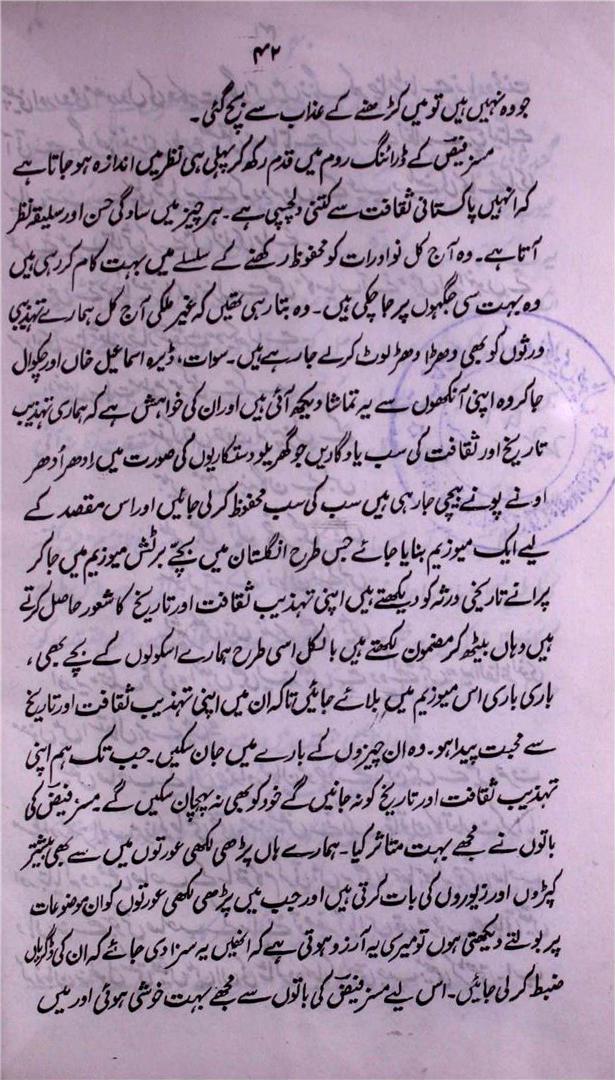 ۴۲
جو وہ نہیں ہیں تو میں کڑھنے کے عذاب سے بچ گئی۔
مسز فیض کے ڈرائنگ روم میں قدم رکھ کر پہلی ہی نظر میں اندازہ ہو جاتا ہے
کہ انہیں پاکستانی ثقافت سے کتنی دلچسپی ہے۔ ہر چیز میں سادگی حسن اور سلیقہ نظر
آتا ہے۔ وہ آج کل نوادرات کو محفوظ رکھنے کے سلسلے میں بہت کام کر رہی ہیں
وہ بہت سی جگہوں پر جا چکی ہیں۔ وہ بتا رہی تھیں کہ غیر ملکی آج کل ہمارے تہذیبی
ورثوں کو بھی دھڑا دھڑ لوٹ کر لے جا رہے ہیں۔ سوات، ڈیرہ اسماعیل خاں اور چکوال
جا کر وہ اپنی آنکھوں سے یہ تماشا دیکھ آئی ہیں اور ان کی خواہش ہے کہ ہماری تہذیب
تاریخ اور ثقافت کی سب یادگاریں جو گھریلو دستکاریوں کی صورت میں اِدھر اُدھر
اونے پونے بیچی جا رہی ہیں سب کی سب محفوظ کر لی جائیں اور اس مقصد کے
لیے ایک میوزیم بنایا جائے جس طرح انگلستان میں بچے برٹش میوزیم میں جا کر
پرانے تاریخی ورثہ کو دیکھتے ہیں اپنی تہذیب ثقافت اور تاریخ کا شعور حاصل کرتے
ہیں وہاں بیٹھ کر مضمون لکھتے ہیں بالکل اسی طرح ہمارے اسکولوں کے بچے بھی،
باری باری اس میوزیم میں بلائے جائیں تاکہ ان میں اپنی تہذیب ثقافت اور تاریخ
سے محبت پیدا ہو۔ وہ ان چیزوں کے بارے میں جان سکیں۔ جب تک ہم اپنی
تہذیب ثقافت اور تاریخ کو نہ جانیں گے خود کو بھی نہ پہچان سکیں گے۔ مسز فیض کی
باتوں نے مجھے بہت متاثر کیا۔ ہمارے ہاں پڑھی لکھی عورتوں میں سے بھی بیشتر
کپڑوں اور زیوروں کی بات کرتی ہیں اور جب میں پڑھی لکھی عورتوں کو ان موضوعات
پر بولتے دیکھتی ہوں تو میری یہ آرزو ہوتی ہے کہ انہیں یہ سزا دی جائے کہ ان کی ڈگریاں
ضبط کر لی جائیں۔ اس لیے مسز فیض کی باتوں سے مجھے بہت خوشی ہوئی اور میں